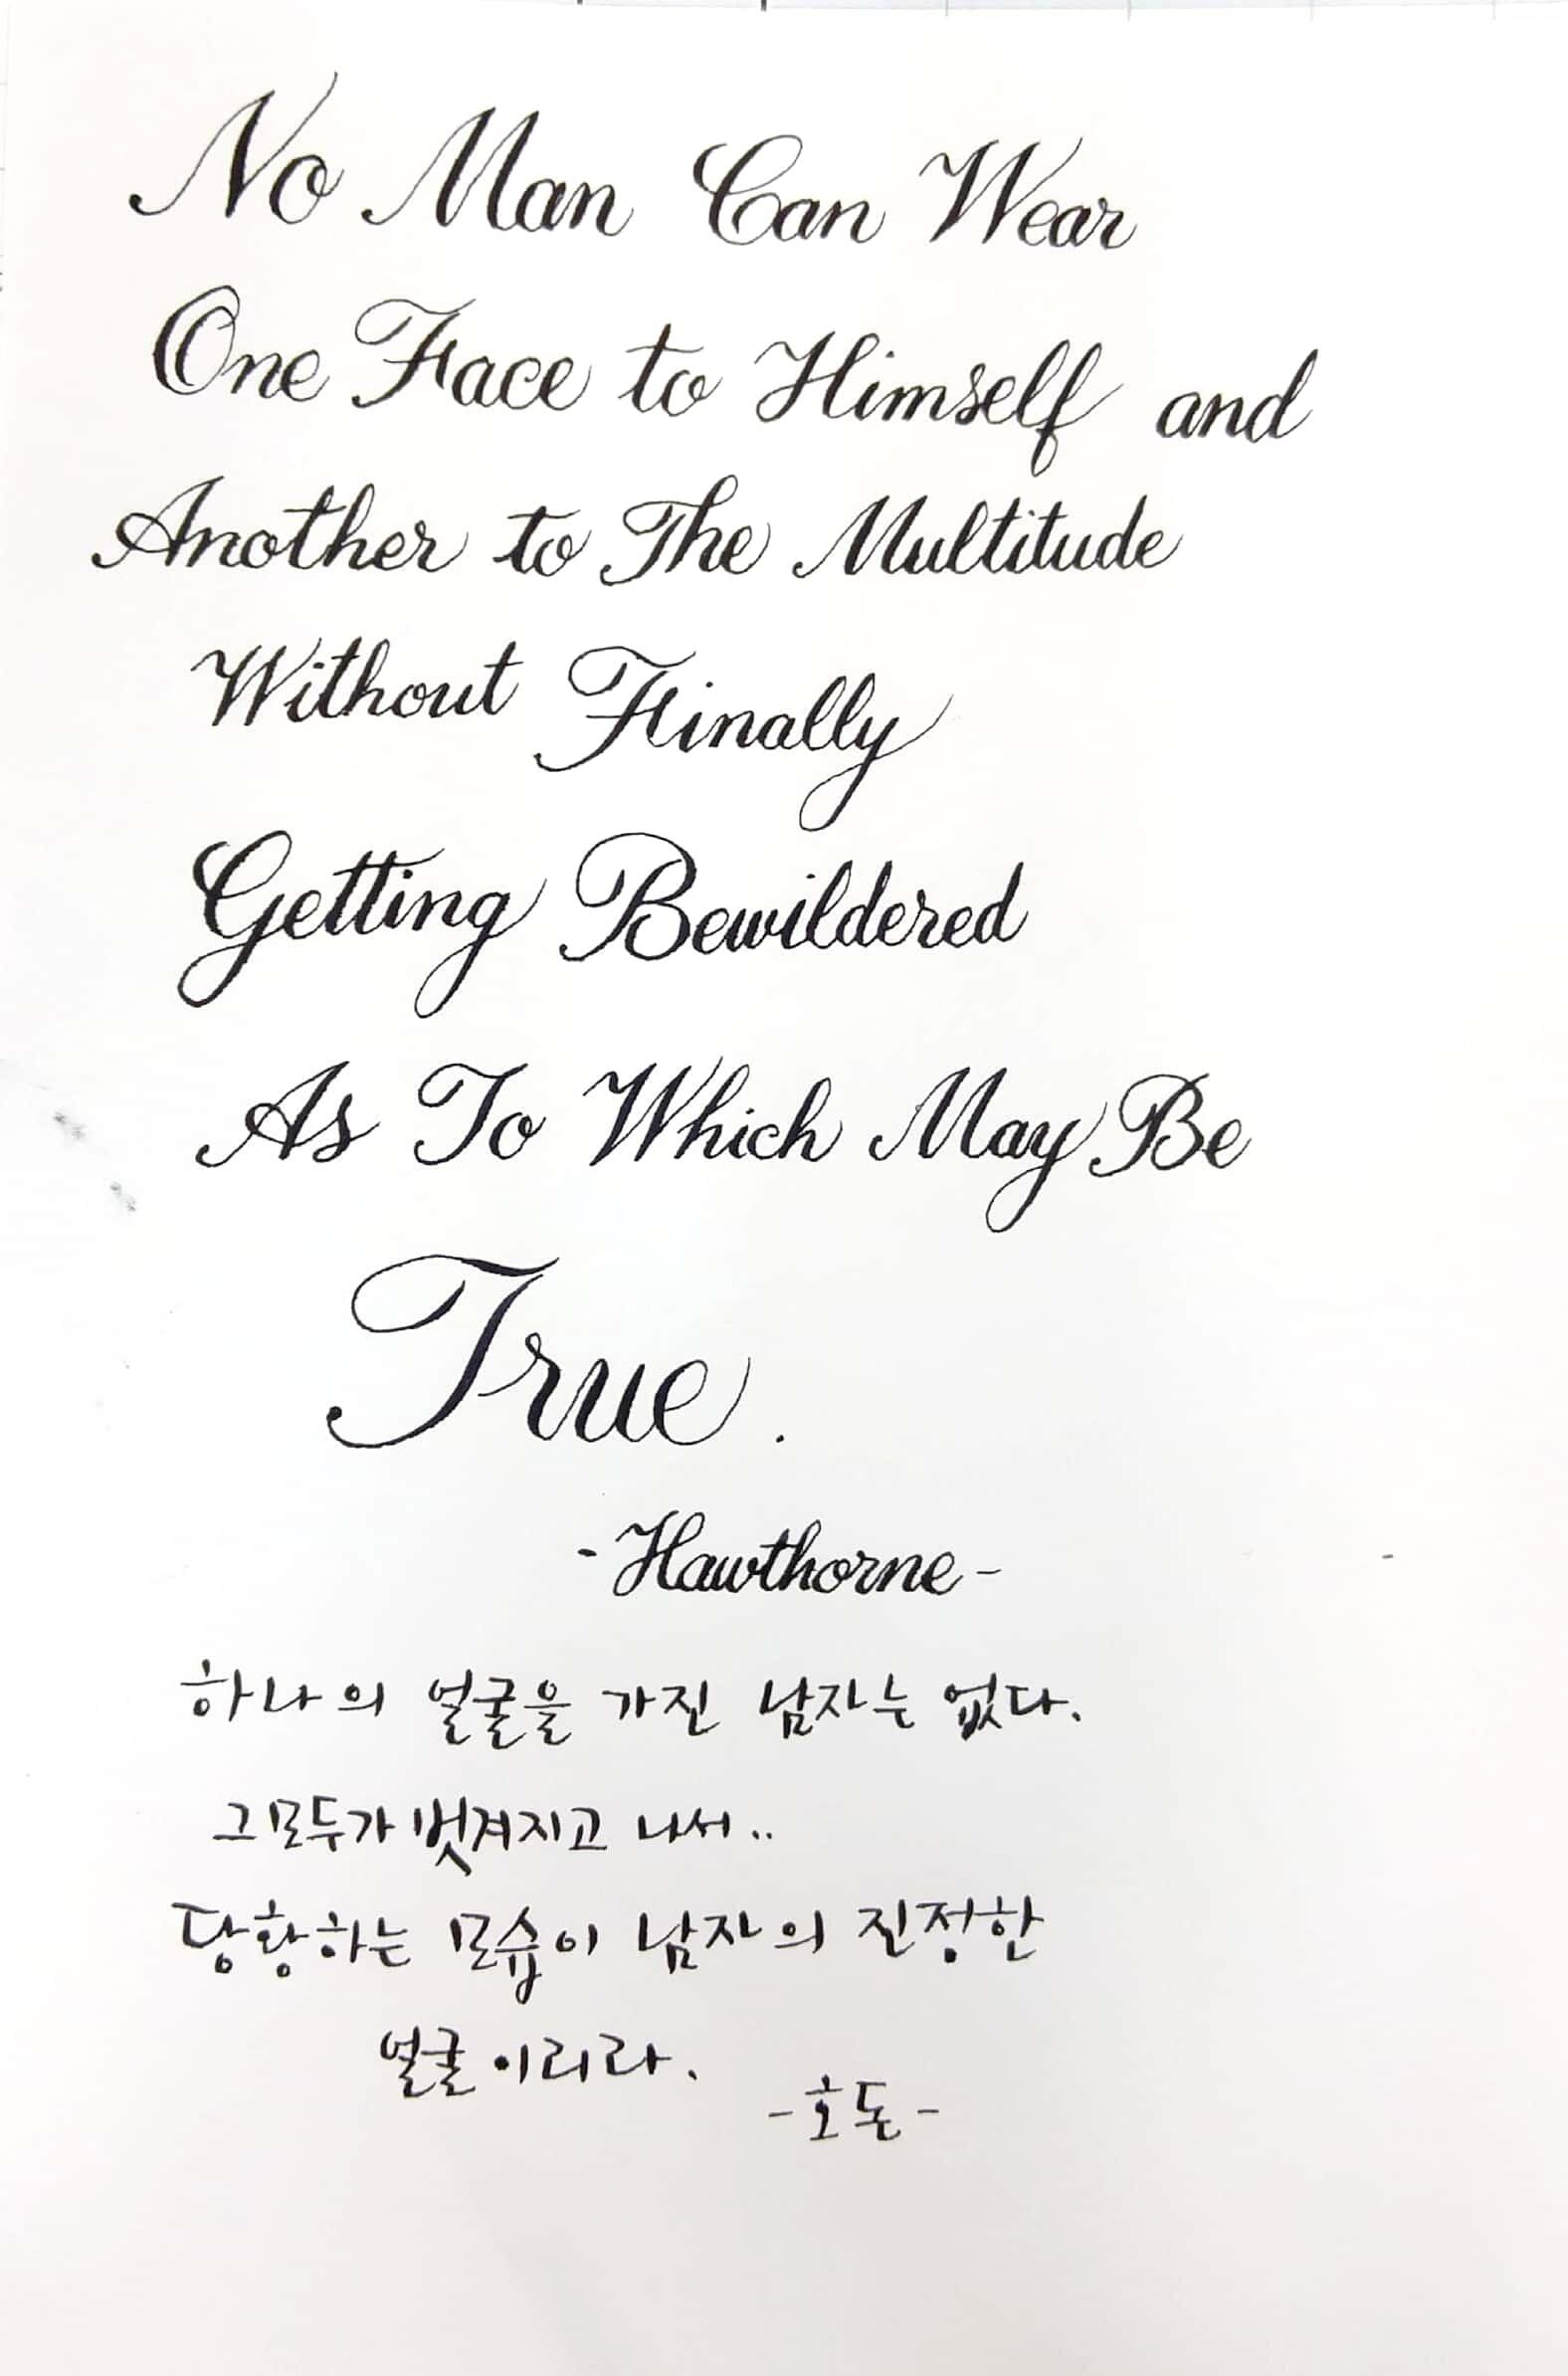 No Man Can Wear
One Face to Himself and
Another to The Multitude
Without Finally
Getting Bewildered
As To Which May Be
True.
-Hawthorne-
하나의 얼굴을 가진 남자는 없다.
그 모두가 벗겨지고 나서..
당황하는 모습이 남자의 진정한
얼굴이리라.
-호돈-